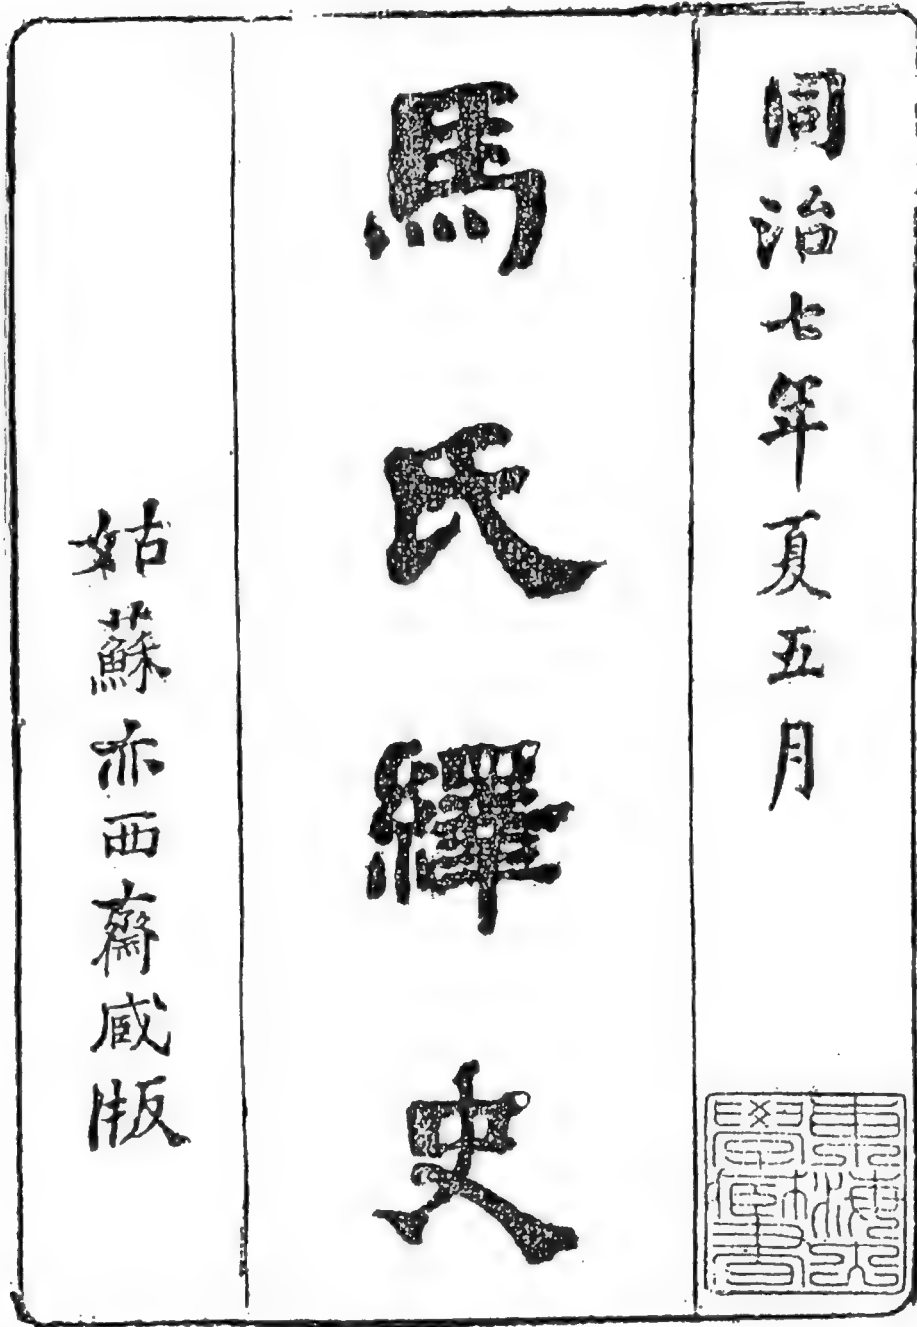 同治七年夏五月
馬氏繹史
姑蘇亦西齋藏版